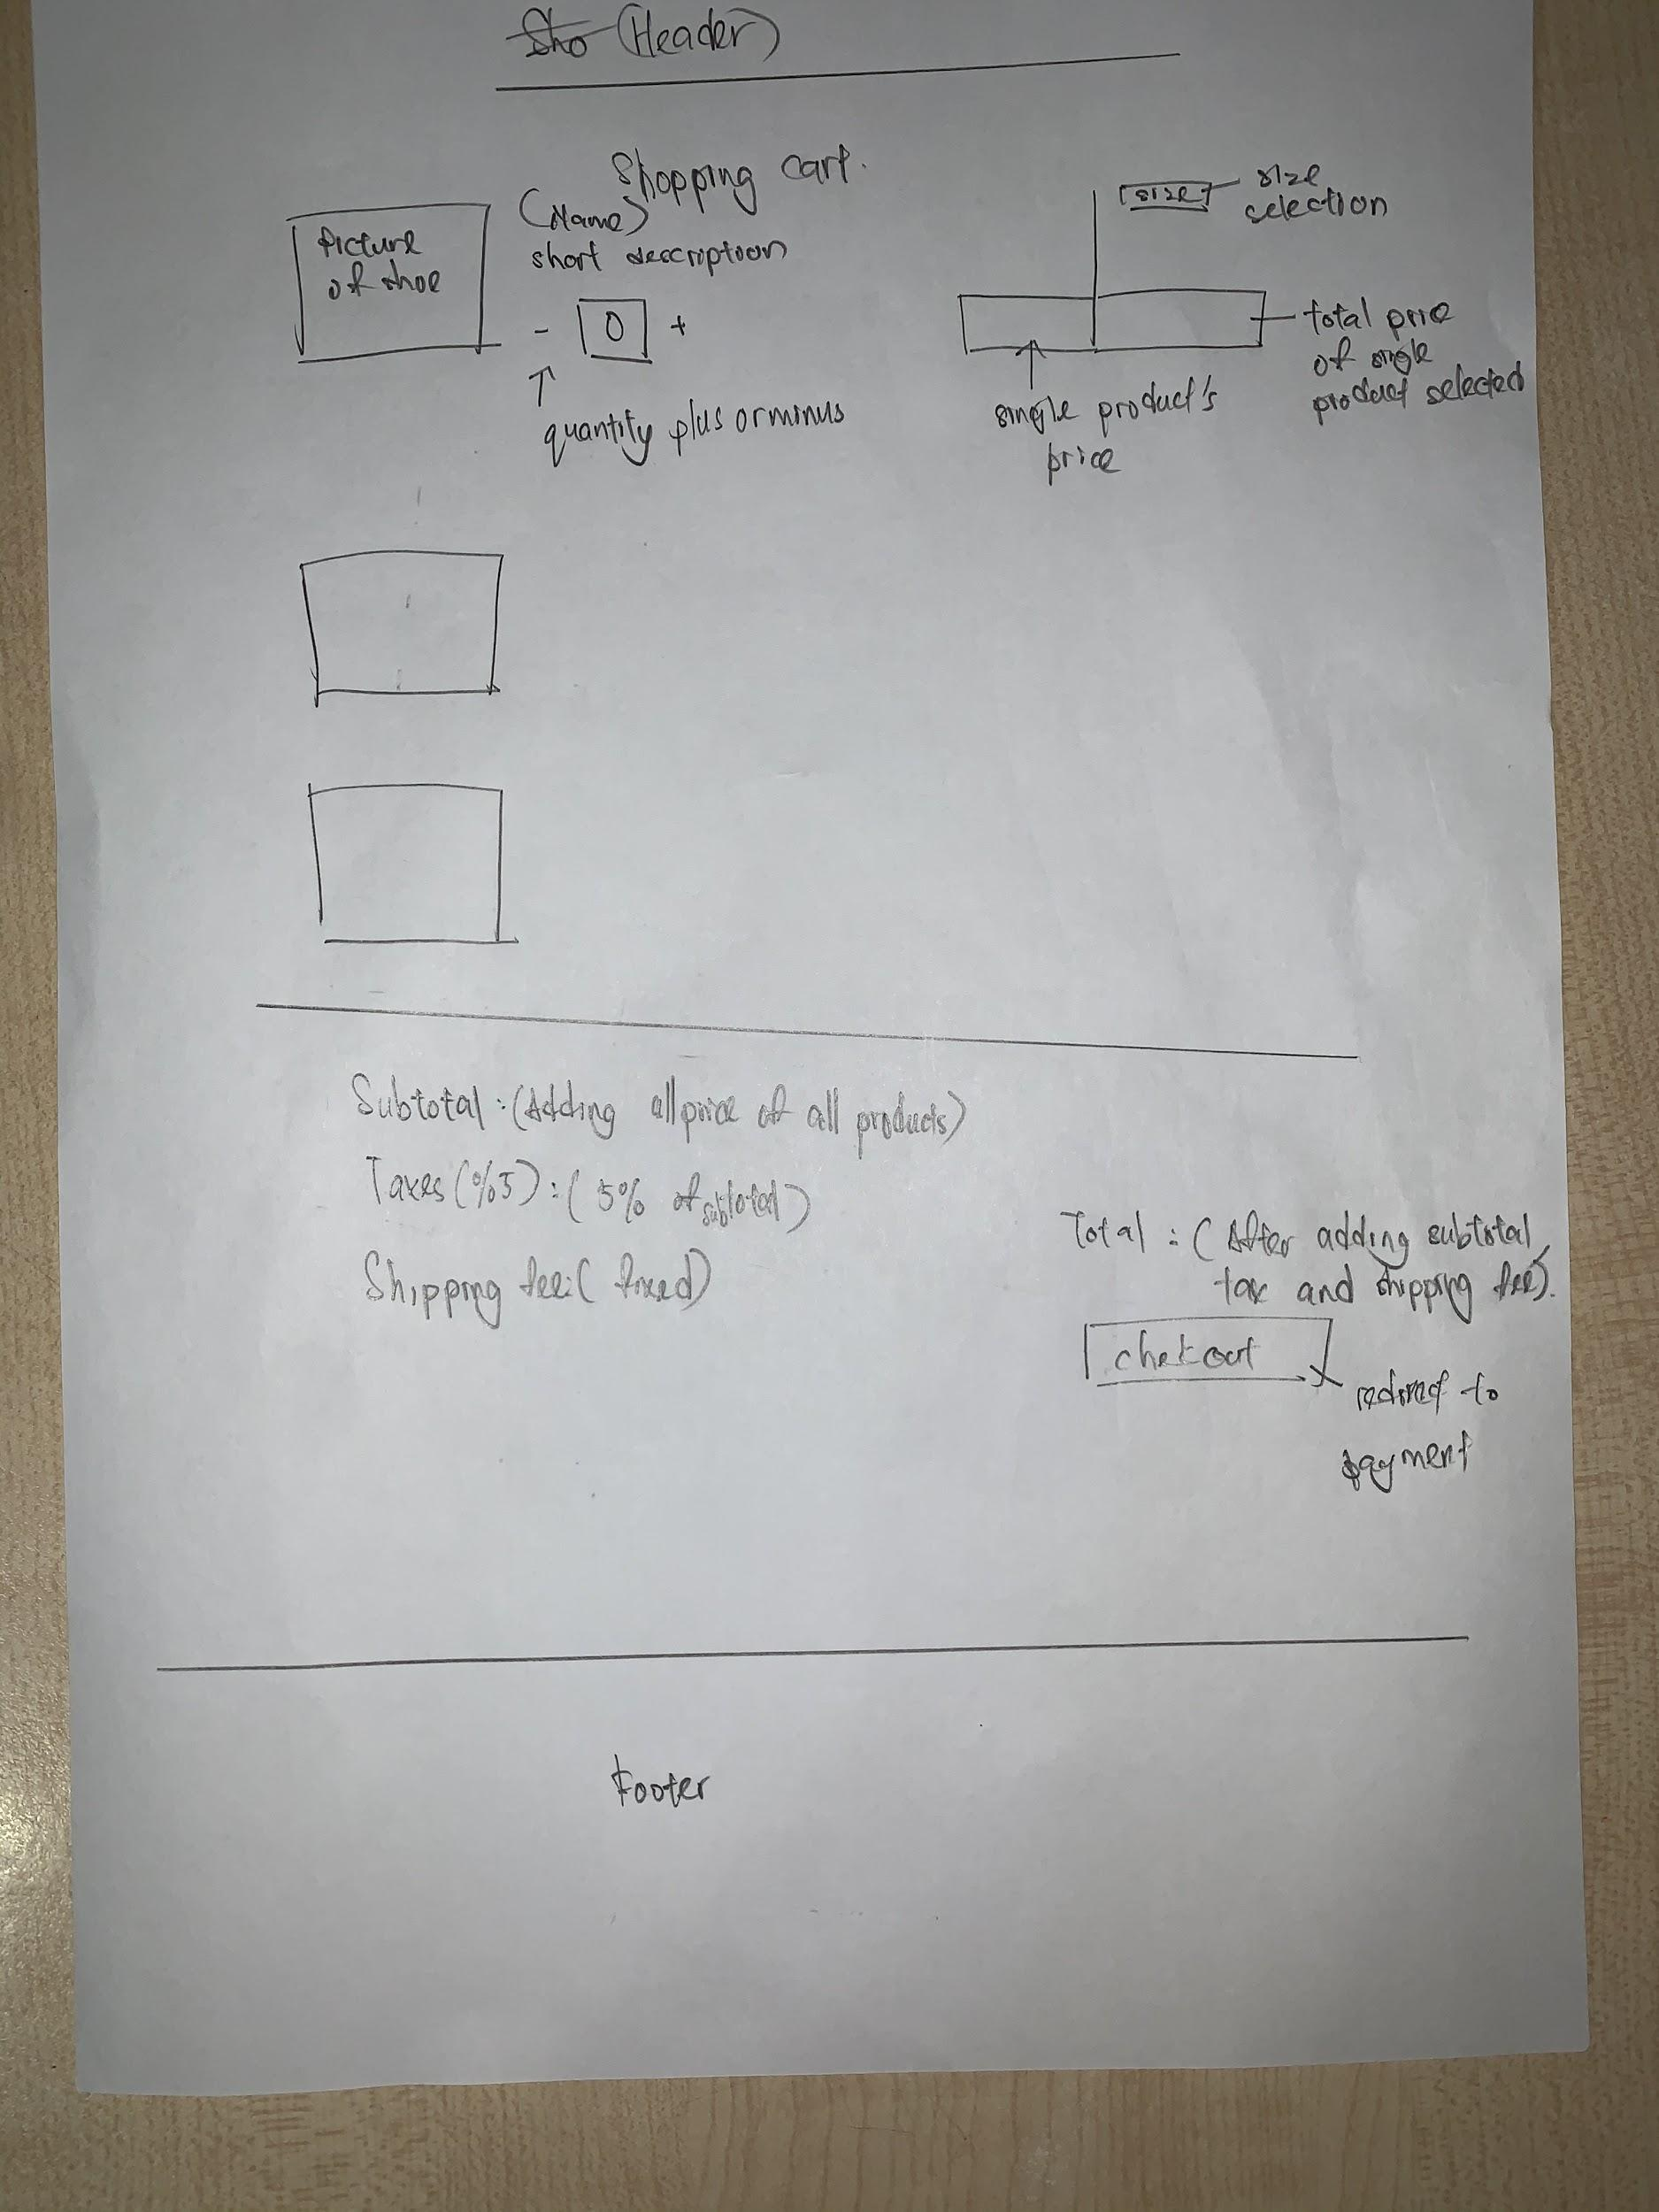 Sho (Header)
Shopping cart.
Picture
of shoe
(Name)
short description
- 0 +
quantity plus or minus
size
size
selection
single product's
price
total price
of single
product selected
Subtotal : (Adding all price of all products)
Taxes (%5) : ( 5% of subtotal )
Shipping fee : ( fixed )
Total : ( After adding subtotal,
tax and shipping fee).
chekout
redirect to
payment
Footer